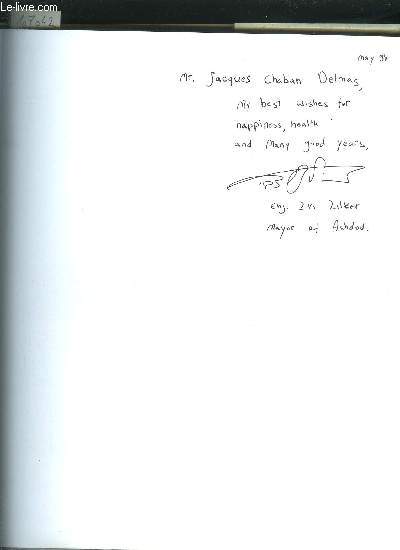 Le-Livre.fr
May 98
Mr. Jacques Chaban Delmas,
My best wishes for
happiness, health
and many good years,
Eng. Zvi Zilker
Mayor of Ashdod.